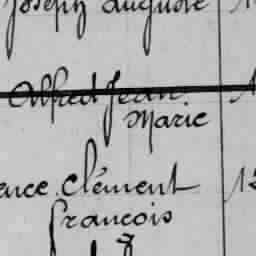 Joseph Auguste
Alfred Jean
Marie
Clément
francois